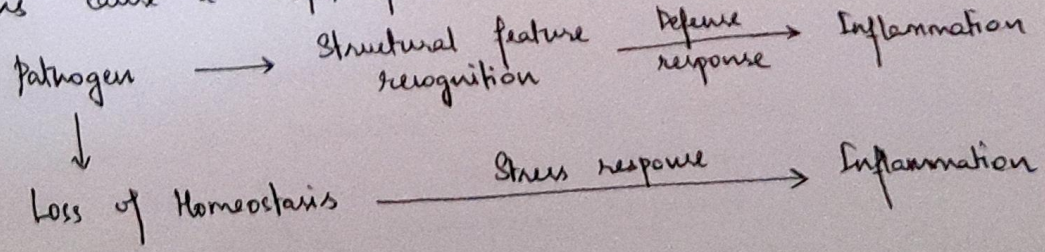 Pathogen → Structural feature recognition → Defense response → Inflammation
↓
Loss of Homeostasis → Stress response → Inflammation